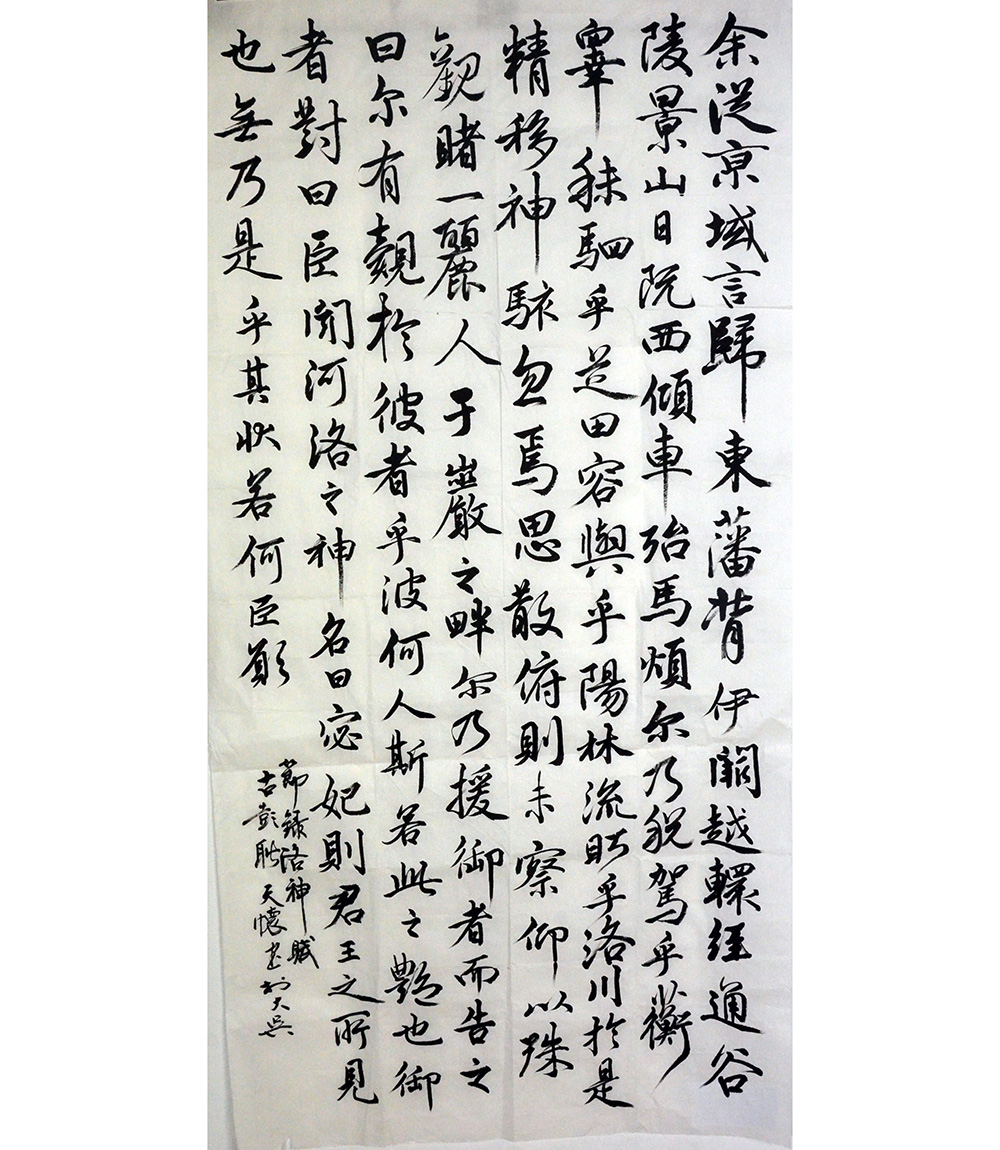 余從京域言歸東藩背伊闕越轘經通谷
陵景山日既西傾車殆馬煩尔乃税駕乎蘅
皋秣駟乎芝田容與乎陽林流眄乎洛川於是
精移神駭忽焉思散俯則未察仰以殊
觀睹一麗人于巖之畔尔乃援御者而告之
曰尔有覿於彼者乎彼何人斯若此之艷也御
者對曰臣聞河洛之神名曰宓妃則君王之所見
也無乃是乎其狀若何臣願
節錄洛神賦
古彭耿天懷書於大吳